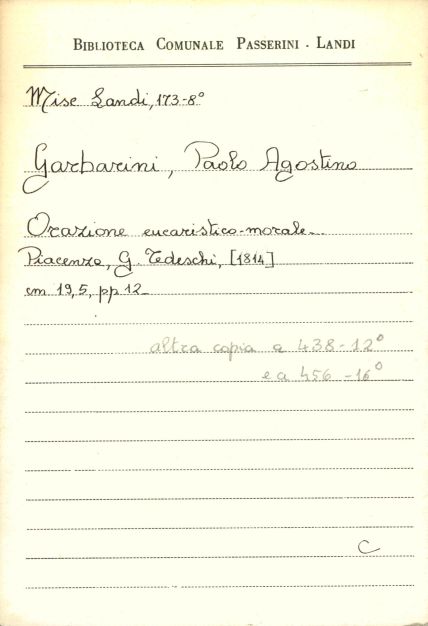 BIBLIOTECA COMUNALE PASSERINI - LANDI
Misc Landi, 173-8°
Garbarini, Paolo Agostino
Orazione eucaristico-morale...
Piacenza, G. Tedeschi, [1814]
cm 19,5, pp 12
altra copia a 438-12°
e a 456-16°
C